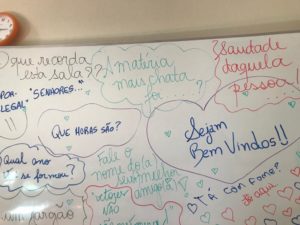 que recorda
esta sala??
POR
LEGAL
"SENHORES...
!!
A matéria
mais chata
foi
Saudade
daquela
pessoa!
QUE HORAS SÃO?
Sejam
Bem Vindos!!
Qual ano
se formou?
Fale o
nome do(a)
seu melhor
amigo(a)
NÃO
Tá com fome?
um jargão